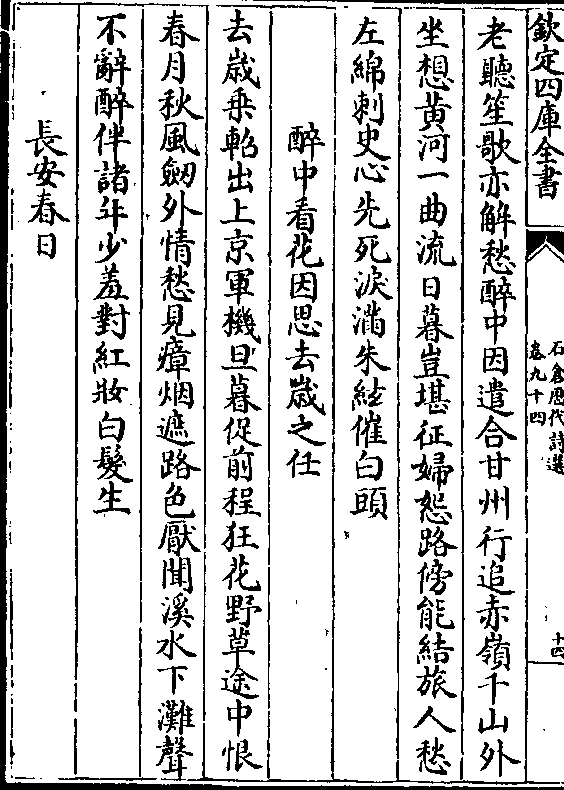 欽定四庫全書
石倉歷代詩選
卷九十四
十四
老聽笙歌亦解愁醉中因遣合甘州行追赤嶺千山外
坐想黃河一曲流日暮豈堪征婦怨路傍能結旅人愁
左綿刺史心先死淚滿朱絃催白頭
醉中看花因思去歲之任
去歲乗軺出上京軍機旦暮促前程狂花野草途中恨
春月秋風劒外情愁見瘴烟遮路色厭聞溪水下灘聲
不辭醉伴諸年少羞對紅妝白髮生
長安春日